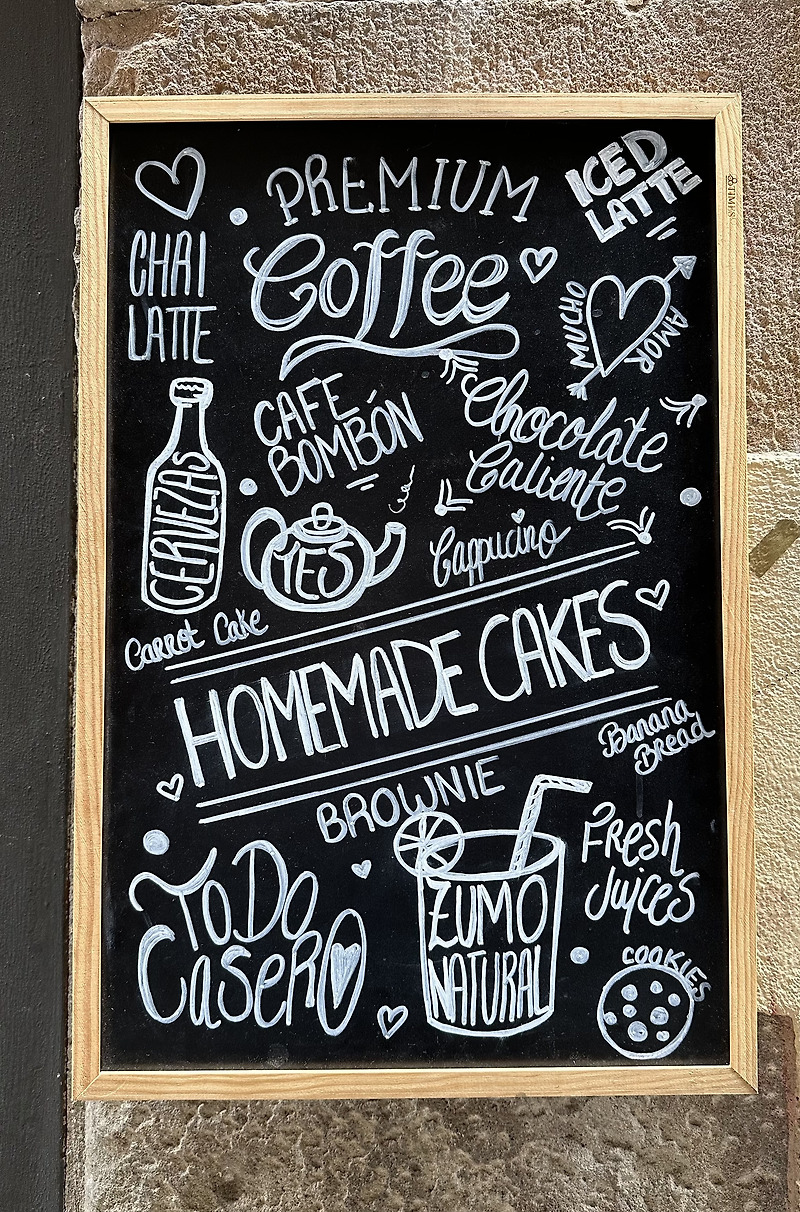 PREMIUM
Coffee
ICED
LATTE
CHAI
LATTE
MUCHO
AMOR
CAFE
BOMBÓN
Chocolate
Caliente
CERVEZAS
TES
Cappucino
Carrot Cake
HOMEMADE CAKES
Banana
Bread
BROWNIE
ToDo
CaseRO
ZUMO
NATURAL
FResh
Juices
COOKIES